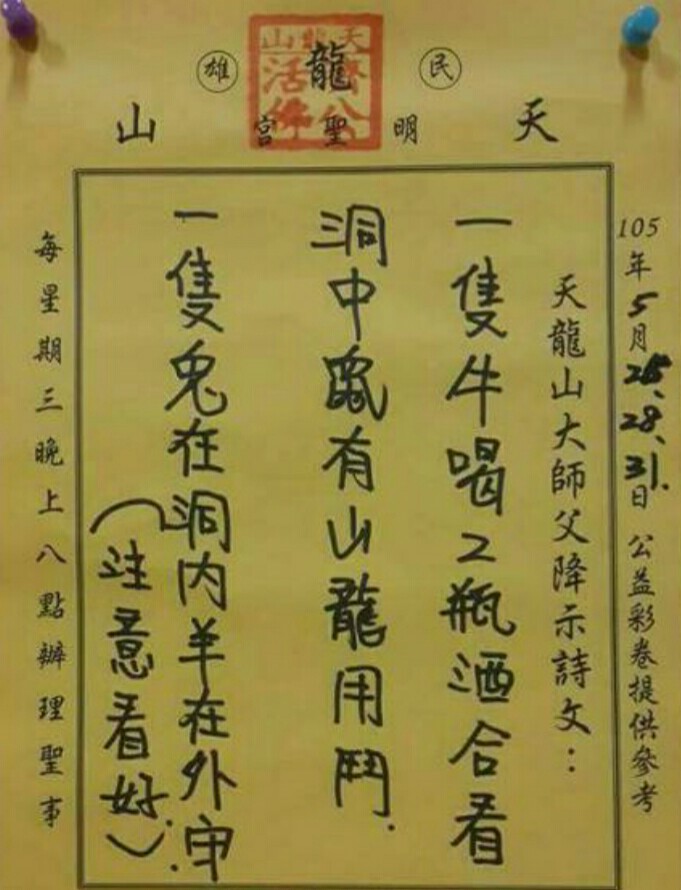 民雄
天龍山
明聖宮
天龍山
濟公
活佛
105年5月25、28、31.日 公益彩卷提供參考
天龍山大師父降示詩文：
一隻牛喝2瓶酒合看
洞中鼠有山龍用鬥.
一隻兔在洞內羊在外守.
（注意看好.）
每星期三晚上八點辦理聖事